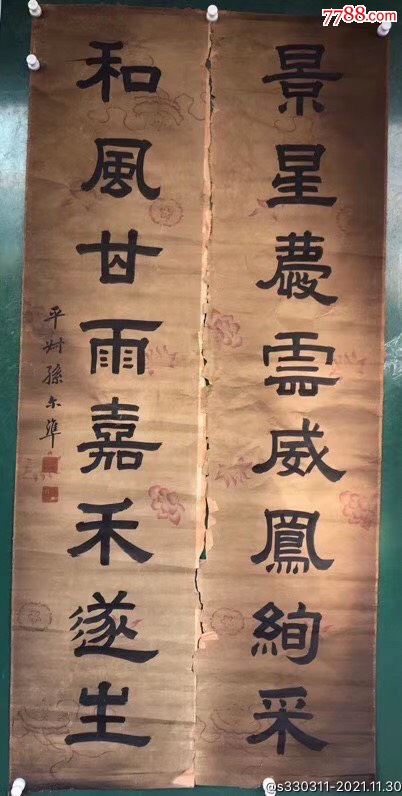 7788.com
景星慶雲威鳳絢采
和風甘雨嘉禾遂生
平叔孫尔準
@s330311-2021.11.30